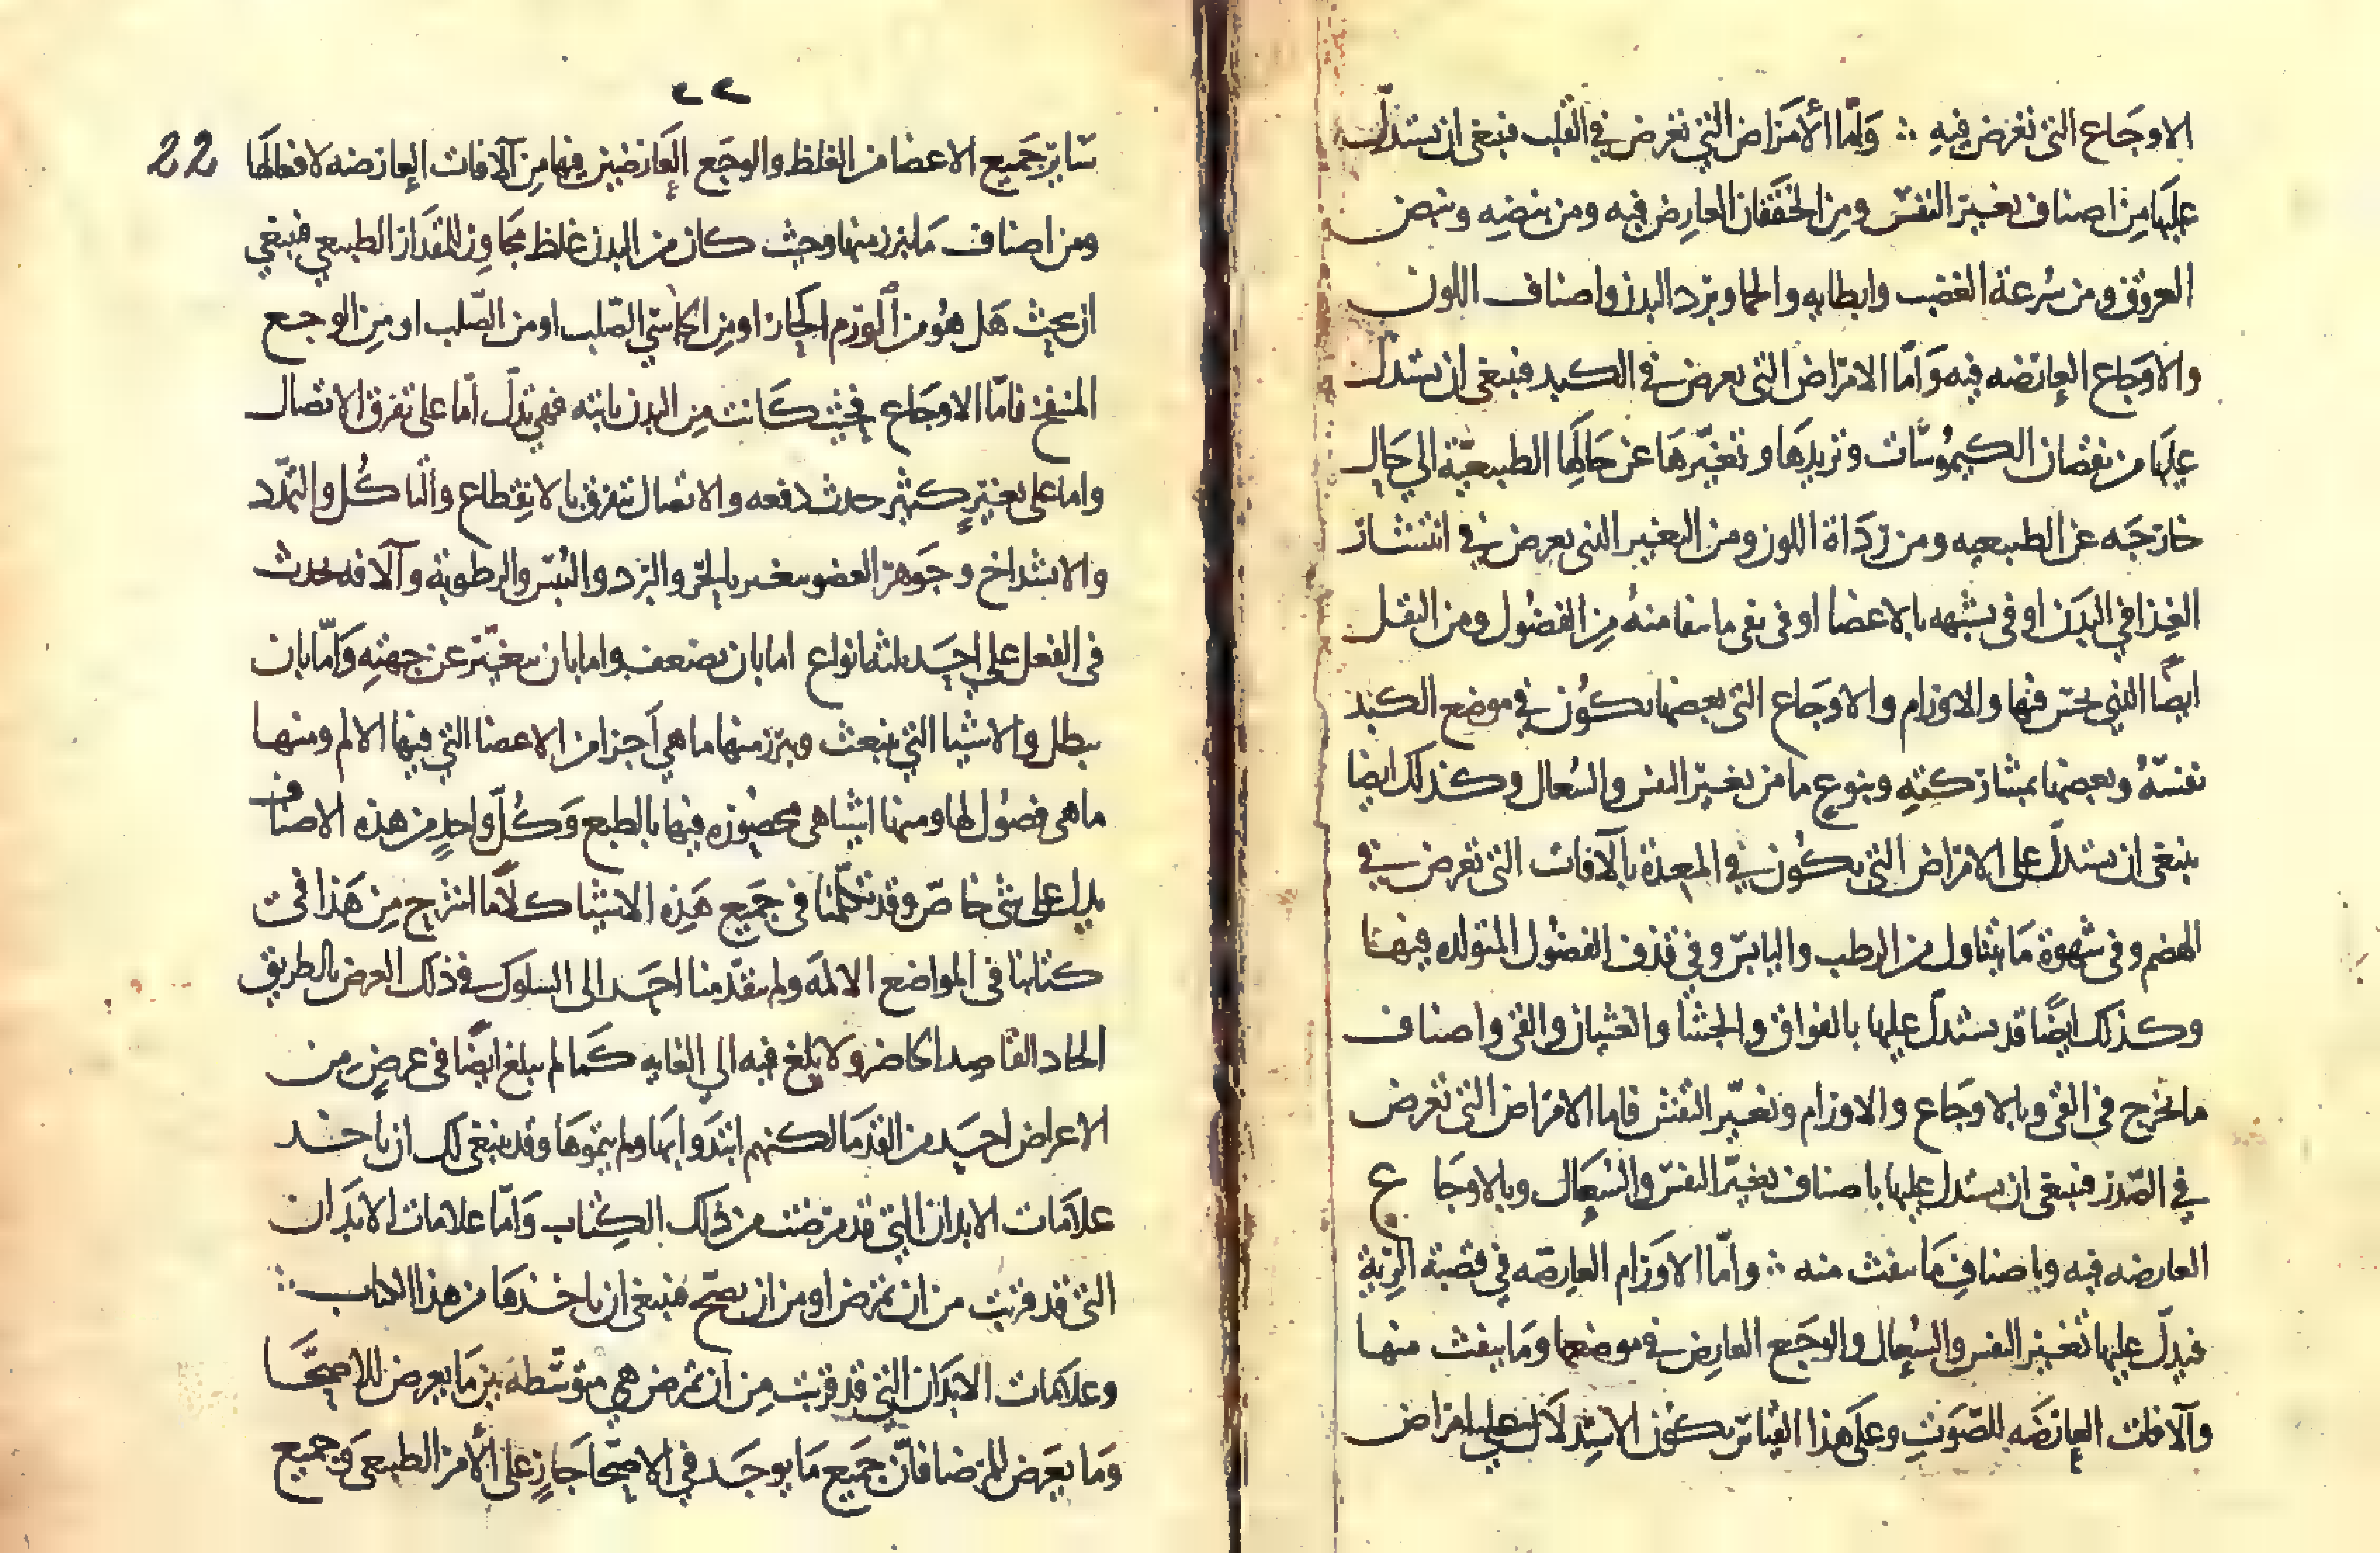 الاوجاع التى تعرض فيه ∴ واما الأمراض التي تعرض في القلب فينبغى ان يستدل
عليها من اصناف تغير النفس ومن الخفقان العارض فيه ومن نبضه ونبض
العروق ومن سرعة الغضب وابطايه والحما وبرد البدن واصناف اللون
والاوجاع العارضه فيه واما الامراض التى تعرض في الكبد فينبغى ان يستدل
عليها من نقصان الكيموسات وتزيدها وتغيرها عن حالها الطبيعية الى حال
خارجه عن الطبيعيه ومن رداة اللون ومن التغير الذى يعرض في انتشار
الغذا في البدن او في تشبهه بالاعضا او فى نقى ما ينقا منه من الفضول ومن الثقل
ايضا الذي يحس فيها والاورام والاوجاع التى بعضها تكون في موضع الكبد
نفسه وبعضها بمشاركته وبنوع ما من تغير النفس والسعال وكذلك ايضا
ينبغى ان يستدل على الامراض التى تكون في المعدة بالآفات التى تعرض في
الهضم وفى شهوة ما يتناول من الرطب واليابس وفي قذف الفضول المتولده فيها
وكذلك ايضا قد يستدل عليها بالفواق والجشا والغثيان والقى واصناف
ما يخرج فى القى وبالاوجاع والاورام وتغير النفس فاما الامراض التى تعرض
في الصدر فينبغى ان يستدل عليها باصناف تغير النفس والسعال وبالاوجاع
العارضه فيه وباصناف ما ينفث منه ∴ واما الاورام العارضه في قصبة الرية
فيدل عليها تغير النفس والسعال والوجع العارض في موضعها وما ينفث منها
والآفات العارضه للصوت وعلى هذا القياس يكون الاستدلال على امراض
٢٢
22
ساير جميع الاعضا من الغلظ والوجع العارضين فيها من الآفات العارضه لافعالها
ومن اصناف ما يبرز منها وحيث كان من البدن غلظ مجاوز للمقدار الطبيعي فينبغي
ان يبحث هل هو من الورم الحار او من الجاسي الصلب او من الصلب او من الوجع
المنفخ فاما الاوجاع فحيث كانت من البدن ثابته فهي تدل اما على تفرق الاتصال
واما على تغير كثير حدث دفعه والاتصال يتفرق بالانقطاع والتاكل والتمدد
والانشداخ وجوهر العضو يتغير بالحر والبرد واليبس والرطوبة والآفه تحدث
فى الفعل على احد ثلثه انواع اما بان يضعف واما بان يتغير عن جهته واما بان
يبطل والاشيا التي تنبعث وتبرز منها ما هي أجزا من الاعضا التي فيها الالم ومنها
ما هى فضول لها ومنها اشيا هى محصوره فيها بالطبع وكل واحد من هذه الاصناف
يدل على شى خاص وقد تكلمنا فى جميع هذه الاشيا كلاما اشرح من هذا فى
كتابنا فى المواضع الالمه ولم يتقدمنا احد الى السلوك في ذلك الغرض بالطريق
الحاد القاصد الحاضر ولا بلغ فيه الي الغايه كما لم يبلغ ايضا فى عرض من
الاعراض احد من القدما لكنهم ابتدوا بها ولم يتموها وقد ينبغى لك ان تاخذ
علامات الابدان التي قد مرضت من ذلك الكتاب واما علامات الابدان
التى قد قربت من ان تمرض او من ان تصح فينبغى ان تاخذها من هذا الكتاب ∴
وعلامات الابدان التي قد قربت من ان تمرض هي متوسطه بين ما يعرض للاصحا
وما يعرض للمرضا فان جميع ما يوجد في الاصحا جار على الأمر الطبيعى وجميع